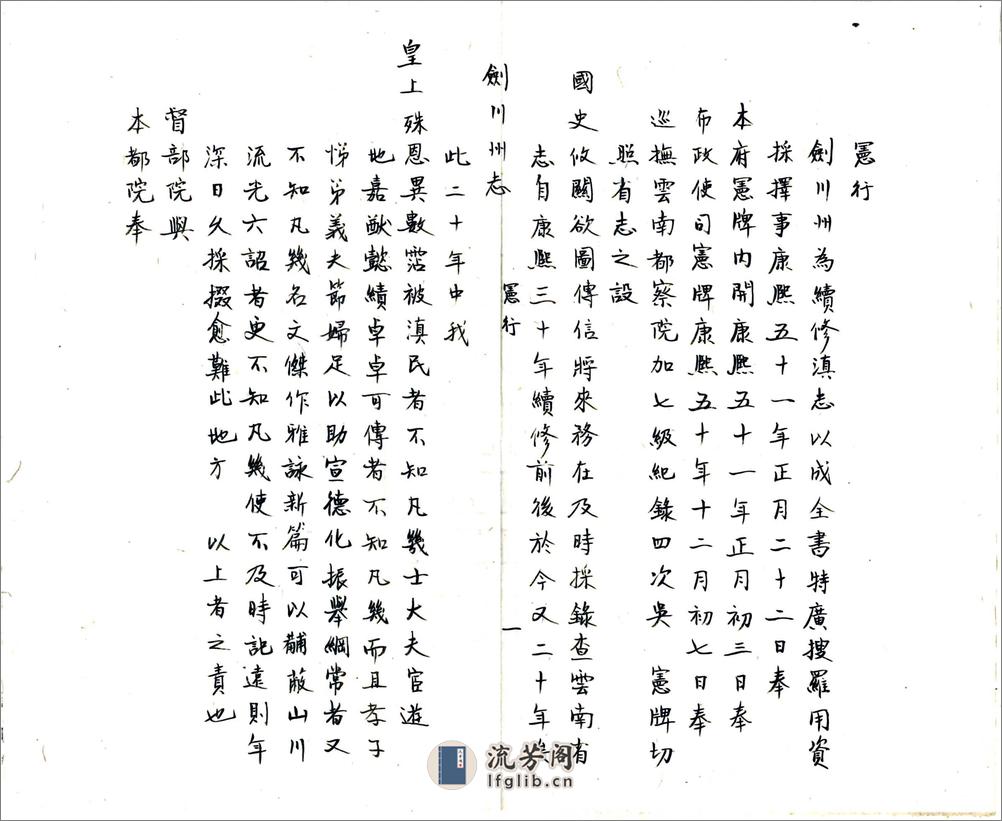 憲行
劍川州為續修滇志以成全書特廣搜羅用資
採擇事康熙五十一年正月二十二日奉
本府憲牌內開康熙五十一年正月初三日奉
布政使司憲牌康熙五十年十二月初七日奉
巡撫雲南都察院加七級紀錄四次吳 憲牌切
照省志之設
國史攸關欲圖傳信將來務在及時採錄查雲南省
志自康熙三十年續修前後於今又二十年矣
劍川州志 憲行 一
此二十年中我
皇上殊恩異數霑被滇民者不知凡幾士大夫宦遊
地嘉猷懿績卓卓可傳者不知凡幾而且孝子
悌弟義夫節婦足以助宣德化振舉綱常者又
不知凡幾名文傑作雅詠新篇可以黼黻山川
流光六詔者更不知凡幾使不及時記遠則年
深日久採掇愈難此地方 以上者之責也
督部院與
本都院奉
流芳阁
lfglib.cn